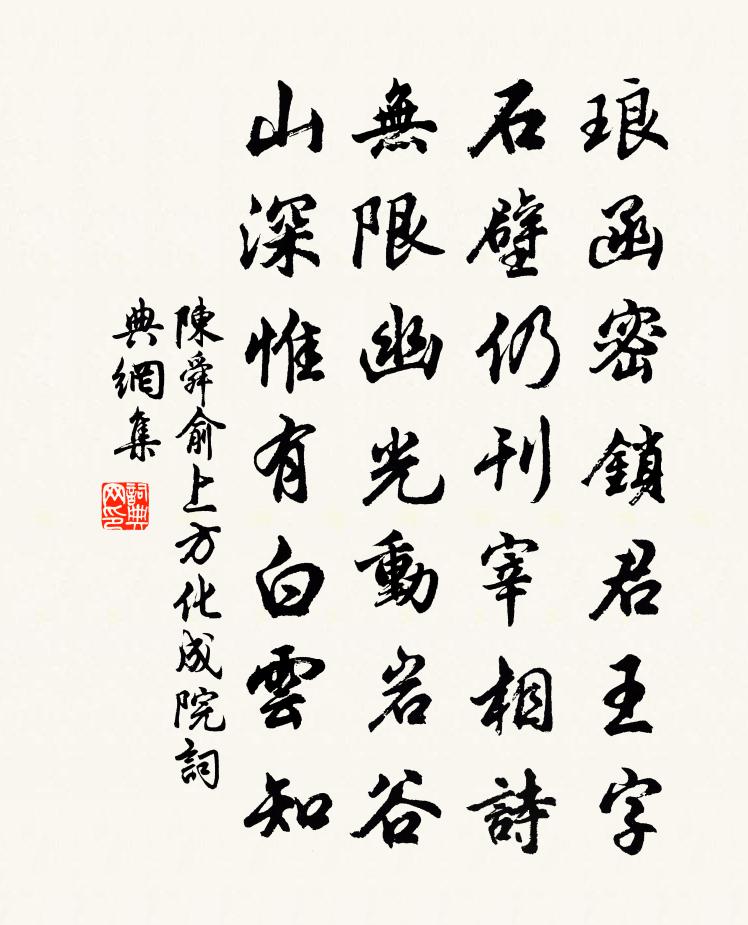 琅函密鎖君王字
石壁仍刊宰相詩
無限幽光動岩谷
山深惟有白雲知
陳舜俞上方化成院詞
典網集
詞典网印